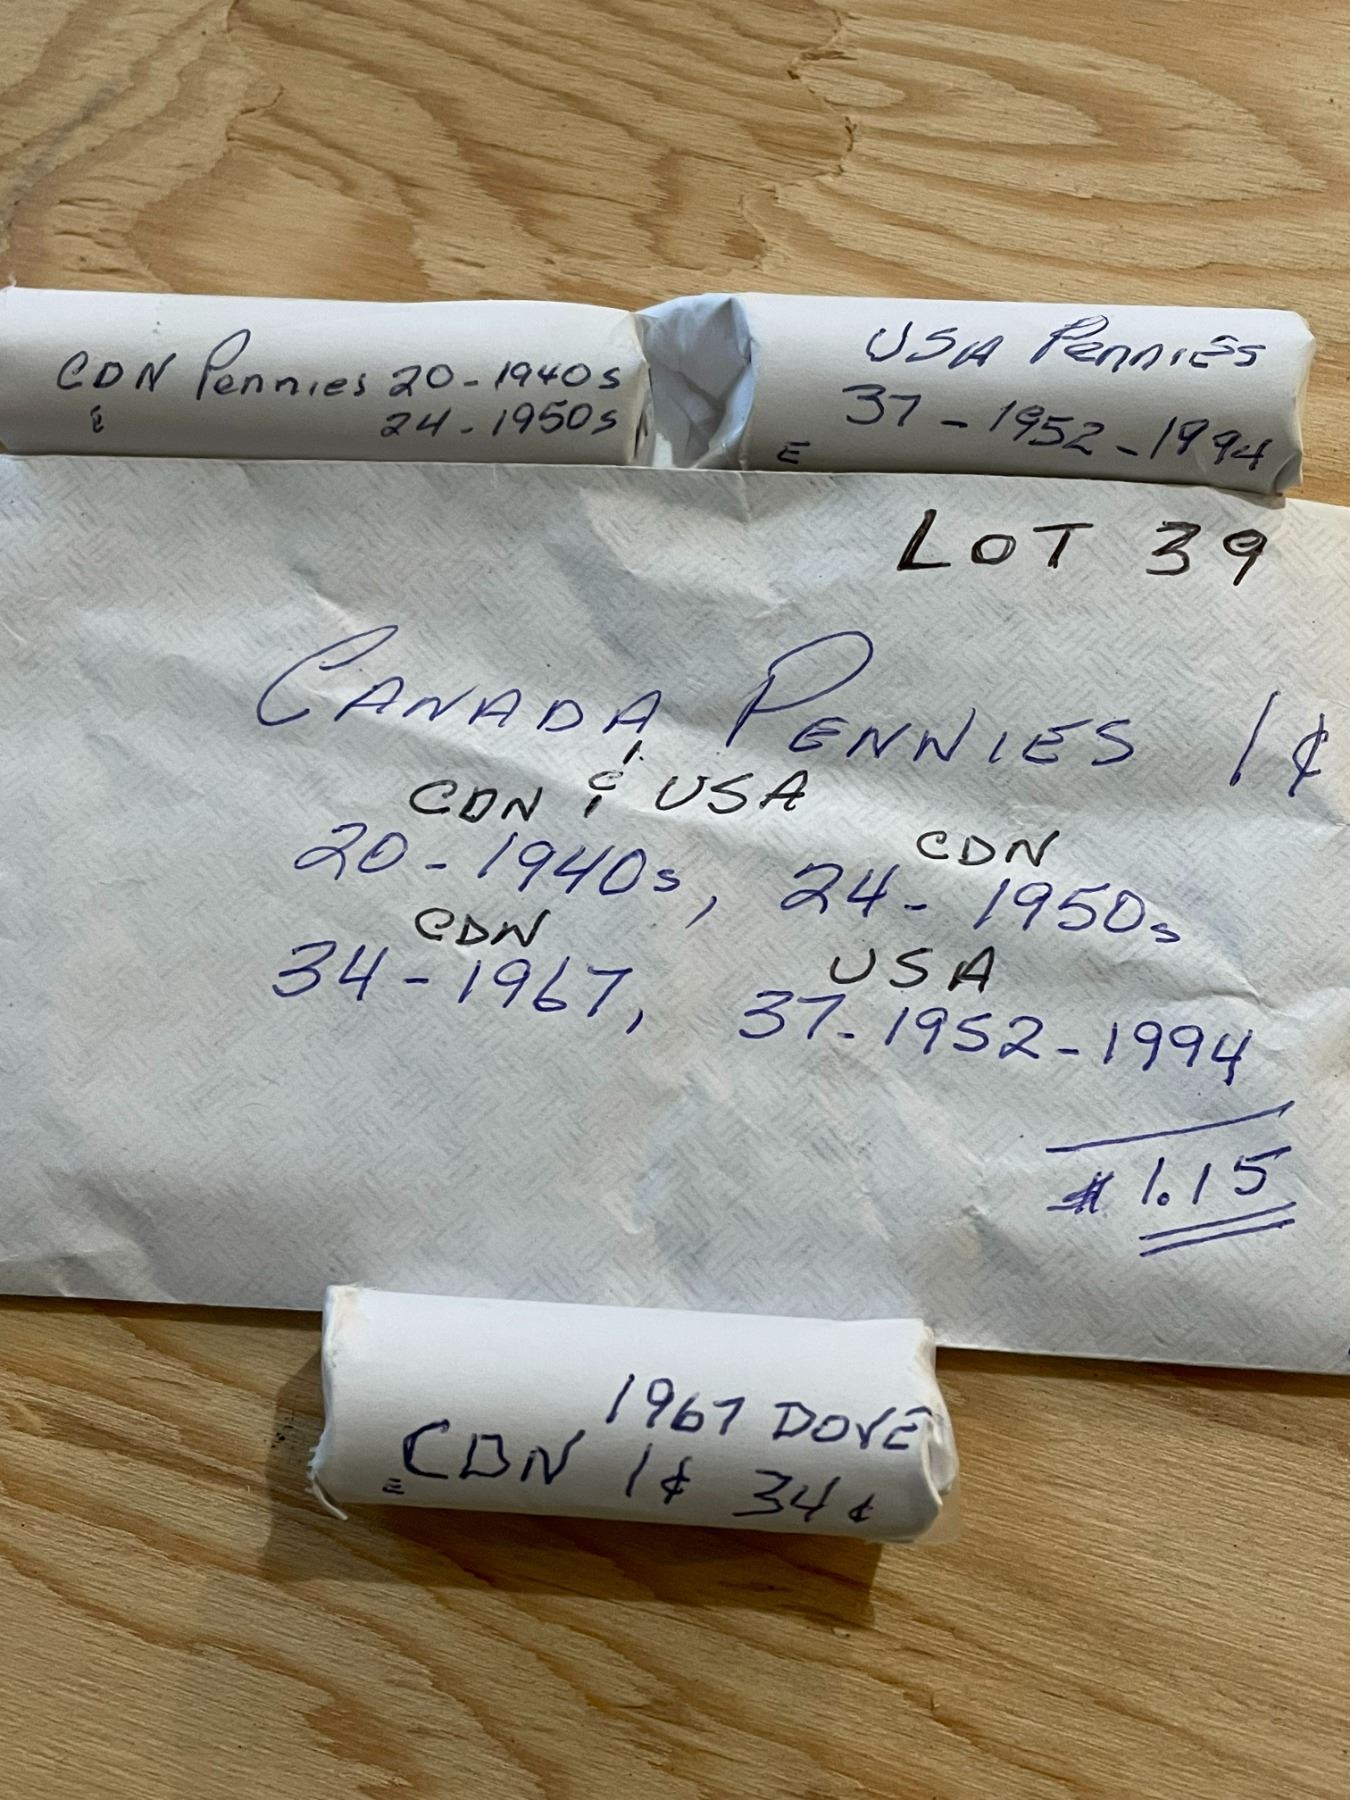 CDN Pennies 20-1940s
& 24-1950s
USA Pennies
E 37-1952-1994
LOT 39
CANADA PENNIES 1¢
CDN & USA
20-1940s, 24-1950s
CDN
CDN
34-1967, 37-1952-1994
USA
$1.15
1967 DOVE
E CDN 1¢ 34¢